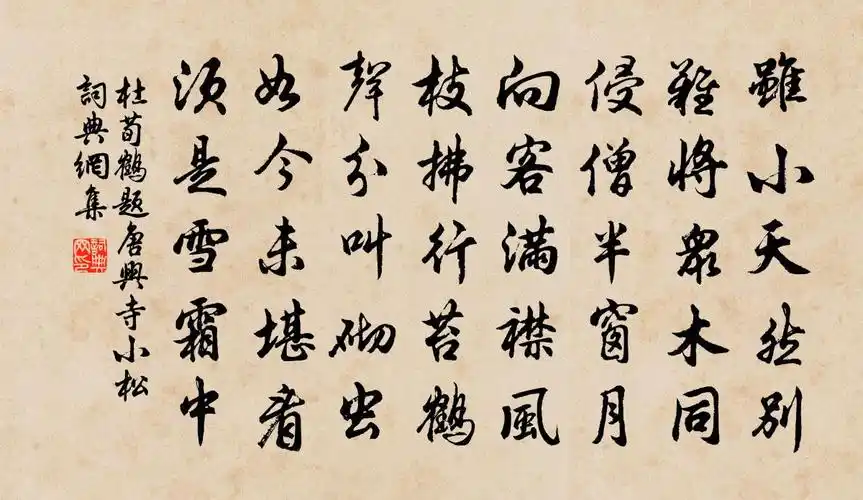 雖小天然別
難將眾木同
侵僧半窗月
向客滿襟風
枝拂行苔鶴
聲分叫砌虫
如今未堪看
須是雪霜中
杜荀鶴題唐興寺小松
詞典網集
詞典网印